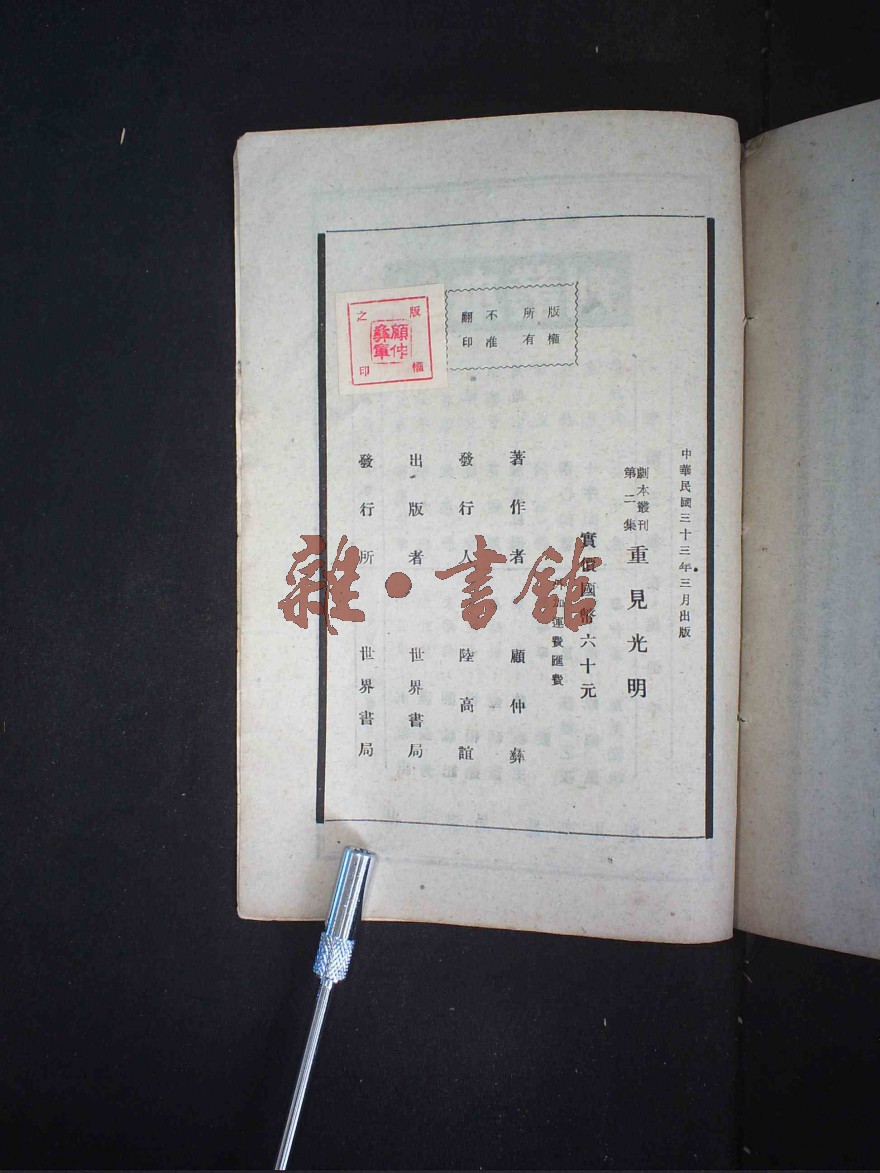 中華民國三十三年三月出版
劇本叢刊
第二集
重見光明
實價國幣六十元
外加運費匯費
版權
所有
不准
翻印
著作者 顧仲彝
發行人 陸高誼
出版者 世界書局
發行所 世界書局
版權
之印
顧仲
彝章
雜·書館